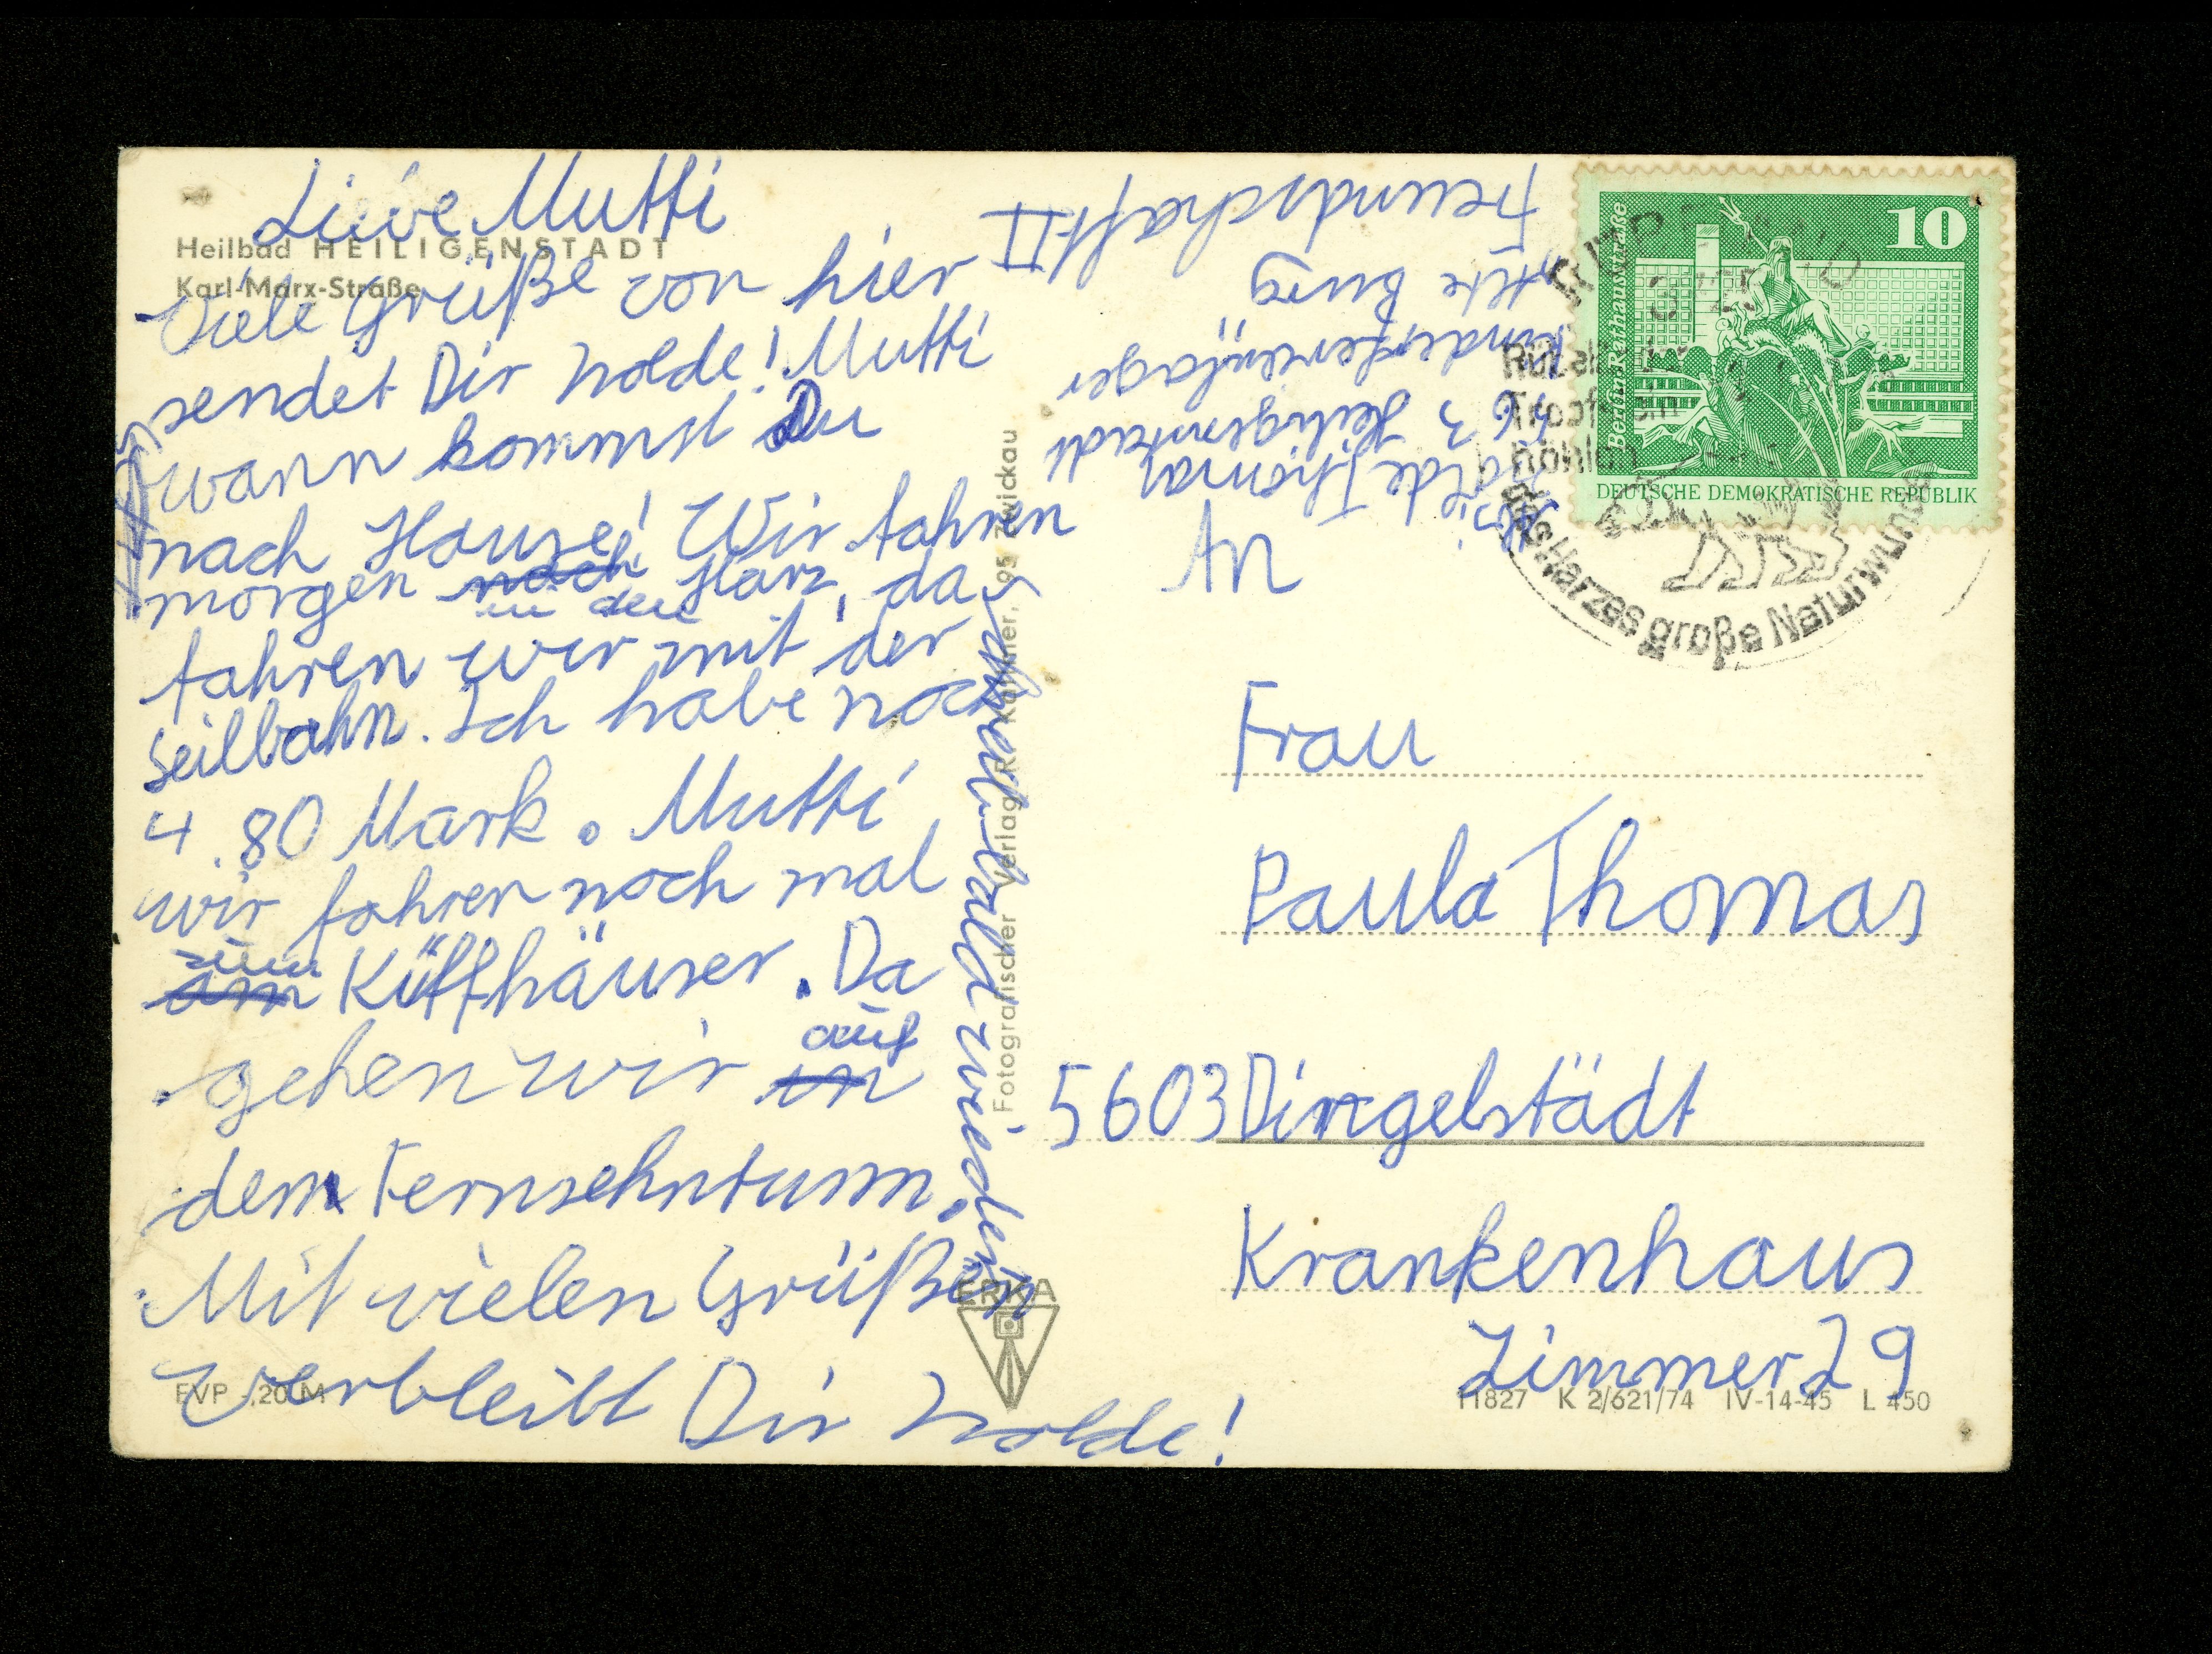 Heilbad HEILIGENSTADT
Karl-Marx-Straße
Liebe Mutti
Viele Grüße von hier
sendet Dir Isolde! Mutti
wann kommst Du
nach Hause! Wir fahren
morgen nach in den Harz, da
fahren wir mit der
Seilbahn. Ich habe noch
4.80 Mark. Mutti
wir fahren noch mal
zum
am Küffhäuser. Da
gehen wir auf
in
dem Fernsehnturm.
Mit vielen Grüßen
verbleibt Dir Isolde!
schreib bald wieder
Fotografischer Verlag R. Kallmer, 95 Zwickau
ERKA
EVP -,20 M
Isolde Thomas
563 Heiligenstadt
Kinderferienlager
"Alte Burg
Freundschaft II
10
Berlin Rathausstraße
DEUTSCHE DEMOKRATISCHE REPUBLIK
des Harzes große Naturwunder
An
Frau
Paula Thomas
5603 Dingelstädt
Krankenhaus
Zimmer 29
11827 K 2/621/74 IV-14-45 L 450